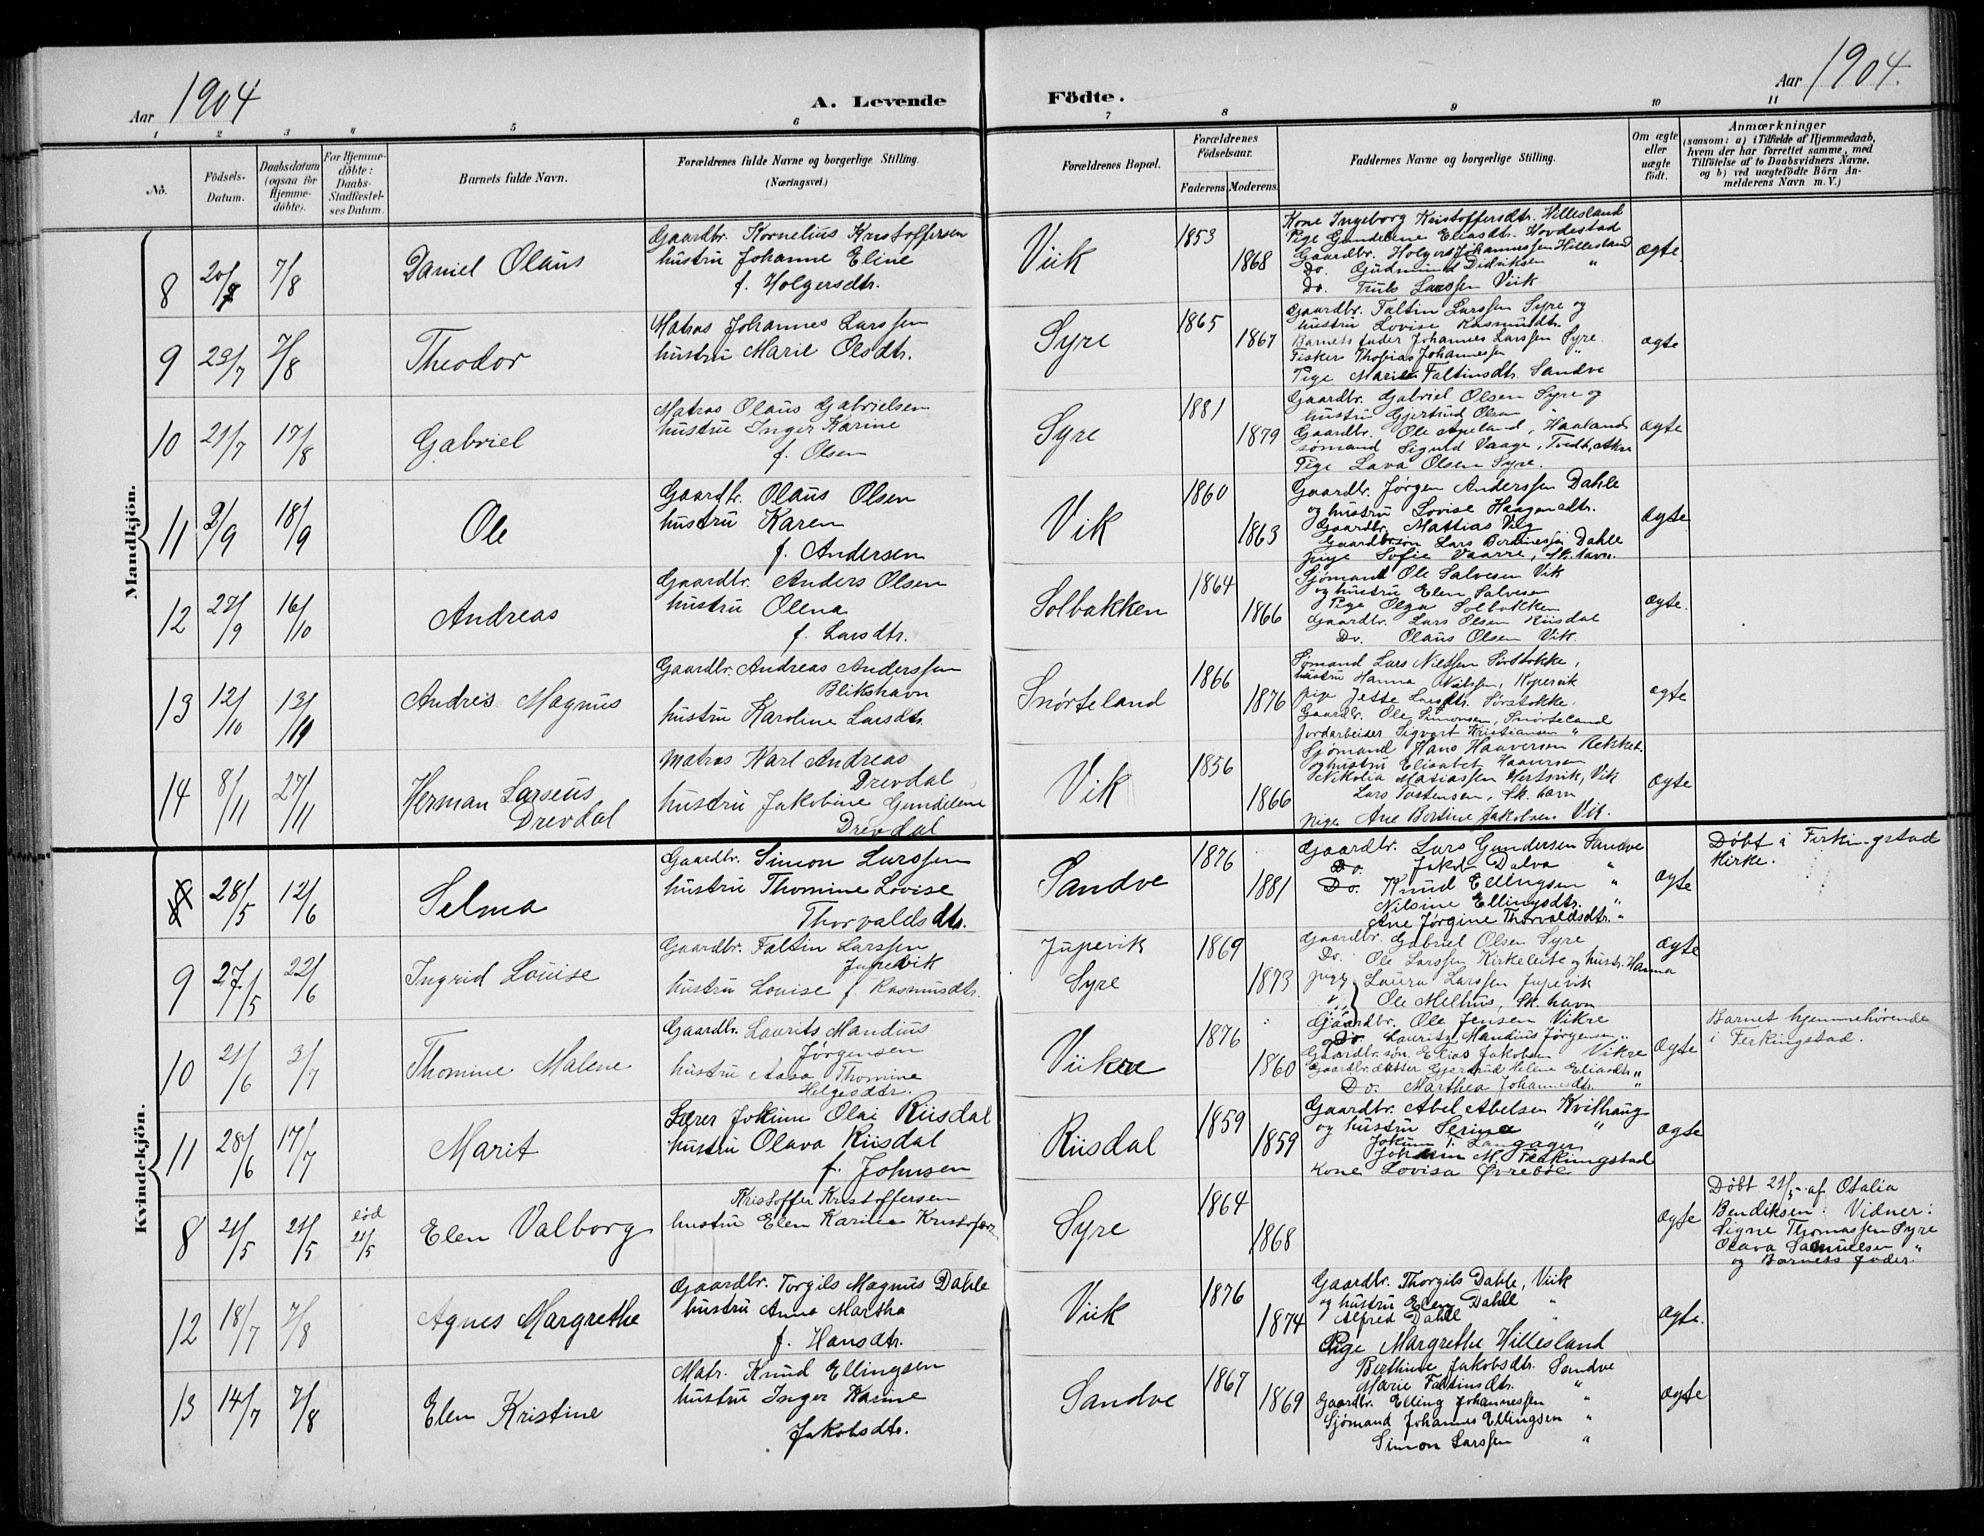 Aar 1904
A. Levende Födte.
Aar 1904.
1 2 3 4 5 6 7 8 9 10 11
No.
Födsels-Datum.
Daabsdatum (ogsaa for Hjemme-döbte).
For Hjemme-döbte: Daabs-Stadfæstel-ses Datum.
Barnets fulde Navn.
Forældrenes fulde Navne og borgerlige Stilling. (Næringsvei.)
Forældrenes Bopæl.
Forældrenes Födselsaar.
Faderens Moderens.
Faddernes Navne og borgerlige Stilling.
Om ægte eller uægte födt.
Anmærkninger
(saasom: a) i Tilfælde af Hjemmedaab, hvem der har forrettet samme, med Tilföielse af to Daabsvidners Navne. og b) ved uægtefödte Börn An-melderens Navn m. V.)
Mandkjön.
8 20/7 7/8 Daniel Olaus
Gaardbr. Kornelius Kristoffersen
hustru Johanne Eline
f. Holgersdtr.
Viik 1853 1868
Kone Ingeborg Kristoffersdtr. Hillesland
Pige Gundelene Eliasdtr. Hovdestad
Gaardbr. Holgers Johannessen Hillesland
Do. Gudmund Didriksen "
Do. Truls Larssen Viik
ægte.
9 23/7 7/8 Theodor
Matros Johannes Larssen
hustru Marie Olsdtr.
Syre 1865 1867
Gaardbr. Faltin Larssen Syre og
hustru Lovise Rasmusdtr.
Barnets fader Johannes Larssen Syre.
Fisker Thobias Johannessen "
Pige Marie Faltinsdtr. Sandve
ægte
10 21/7 17/8 Gabriel
Matros Olaus Gabrielsen
hustru Inger Karine
f. Olsen
Syre 1881 1879
Gaardbr. Gabriel Olsen Syre og
hustru Gjertrud Olsen "
Gaardbr. Ole Apeland, Haaland
sømand Sigurd Vaage, Tvedt, Akre
Pige Lava Olsen Syre.
ægte
11 2/9 18/9 Ole
Gaardbr. Olaus Olsen
hustru Karen
f. Andersen
Vik 1860 1863
Gaardbr. Jørgen Anderssen Dahle
og hustru Lovise Haagensdtr.
Gaardbr. Mattias Vig
Gaardbrsøn Lars Berdinessen Dahle
pige Sofie Vaarre, Sk. havn.
ægte
12 27/9 16/10 Andreas
Gaardbr. Anders Olsen
hustru Olena
f. Larsdtr.
Solbakken 1864 1866
Sjømand Ole Salvesen Vik
og hustru Elen Salvesen
Pige Olga Solbakken
Gaardbr. Lars Olsen Riisdal
Do. Olaus Olsen Vik.
ægte.
13 12/10 13/11 Andres Magnus
Gaardbr. Andreas Anderssen
Blikshavn
hustru Karoline Larsdtr.
Snørteland 1866 1876
Sømand Lars Nielssen Sørstokke,
hustru Hanna Nielssen, Kopervik
pige Jette Larsdtr. Sørstokke.
Gaardbr. Ole Simonsen, Snørteland
Jordarbeider Sigvart Kristiansen "
ægte
14 8/11 27/11 Herman Larseus
Drevdal
Matros Karl Andreas
Drevdal
hustru Jakobine Gundelene
Drevdal
Vik 1856 1866
Sjømand Hans Haaversen
og hustru Elisabet Haaversen
Nikolia Matiassen Hertsvik, Vik
Lars Tostensen, Sk. havn
Pige Ane Bertine Jakobsen Vik.
ægte
Kvindekjön.
8 28/5 12/6 Selma
Gaardbr. Simon Larssen
hustru Thomine Lovise
Thorvaldsdtr.
Sandve 1876 1881
Gaardbr. Lars Gundersen Sandve
Do. Jakob Dalva "
Do. Knud Ellingsen "
Nilsine Ellingsdtr. "
Ane Jørgine Thorvaldsdtr. "
ægte
Døbt i Ferkingstad
Kirke.
9 27/5 22/6 Ingrid Louise
Gaardbr. Faltin Larssen
Jupevik
hustru Louise f. Rasmusdtr.
Jupevik
Syre 1869 1873
Gaardbr. Gabriel Olsen Syre
Do. Ole Larssen Kirkeleite og hustr. Hanna
pige Laura Larssen Jupevik
Ole Melhus, Sk. havn
ægte
10 21/6 3/7 Thomine Malene
Gaardbr. Laurits Mandius
Jørgensen
hustru Aasa Thomine
Helgesdtr.
Viikre 1876 1860
Gaardbr. Ole Jensen Vikre
Do. Lauritz Mandius Jørgensen "
Gaardbr. søn Elias Jakobsen Vikre
Gaardbr. datter Gjertrud Helene Eliasdtr. "
Do. Marthea Johannesdtr. "
ægte
Barnet hjemmehørende
i Ferkingstad.
11 28/6 17/7 Marit
Lærer Jokum Olai Riisdal
hustru Olava Riisdal
f. Johnsen
Riisdal 1859 1859
Gaardbr. Abel Abelsen Kvilhaug
og hustru Serine "
Jokum T. Langager
Johan M. Ferkingstad
Kone Lovisa Øvrebøe
ægte
8 21/5 21/5 død 21/5 Elen Valborg
Kristoffer Kristoffersen
hustru Elen Karine Kristofers.
Syre 1864 1868
ægte
Døbt 21/5 af Otalia
Bendiksen: Vidner:
Signe Thomassen Syre
Olava Samuelsen "
og Barnets fader.
12 18/7 7/8 Agnes Margrethe
Gaardbr. Torgils Magnus Dahle
hustru Anna Martha
f. Hansdtr.
Viik 1876 1874
Gaardbr. Thorgils Dahle, Viik
og hustru Elen Dahle "
Alfred Dahle "
Pige Margrethe Hillesland
ægte.
13 14/7 7/8 Elen Kristine
Matr. Knud Ellingsen
hustru Inger Karine
Jakobsdtr.
Sandve 1867 1869
Berthine Jakobsdtr. Sandve
Marie Faltinsdtr. "
Gaardbr. Elling Johannessen "
Sjømand Johannes Ellingsen "
Simon Larssen "
ægte